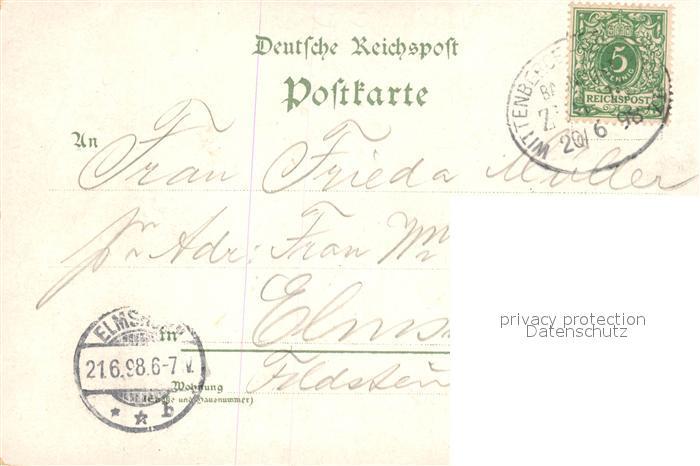 Deutsche Reichspost
Postkarte
5
PFENNIG
REICHSPOST
WITTENBERGE
20/6 98
An Frau Frieda Müller
pr Adr: Frau
in Elms
ELMSHORN
21.6.98.6-7 V.
Wohnung
(Straße und Hausnummer)
* * b
privacy protection
Datenschutz